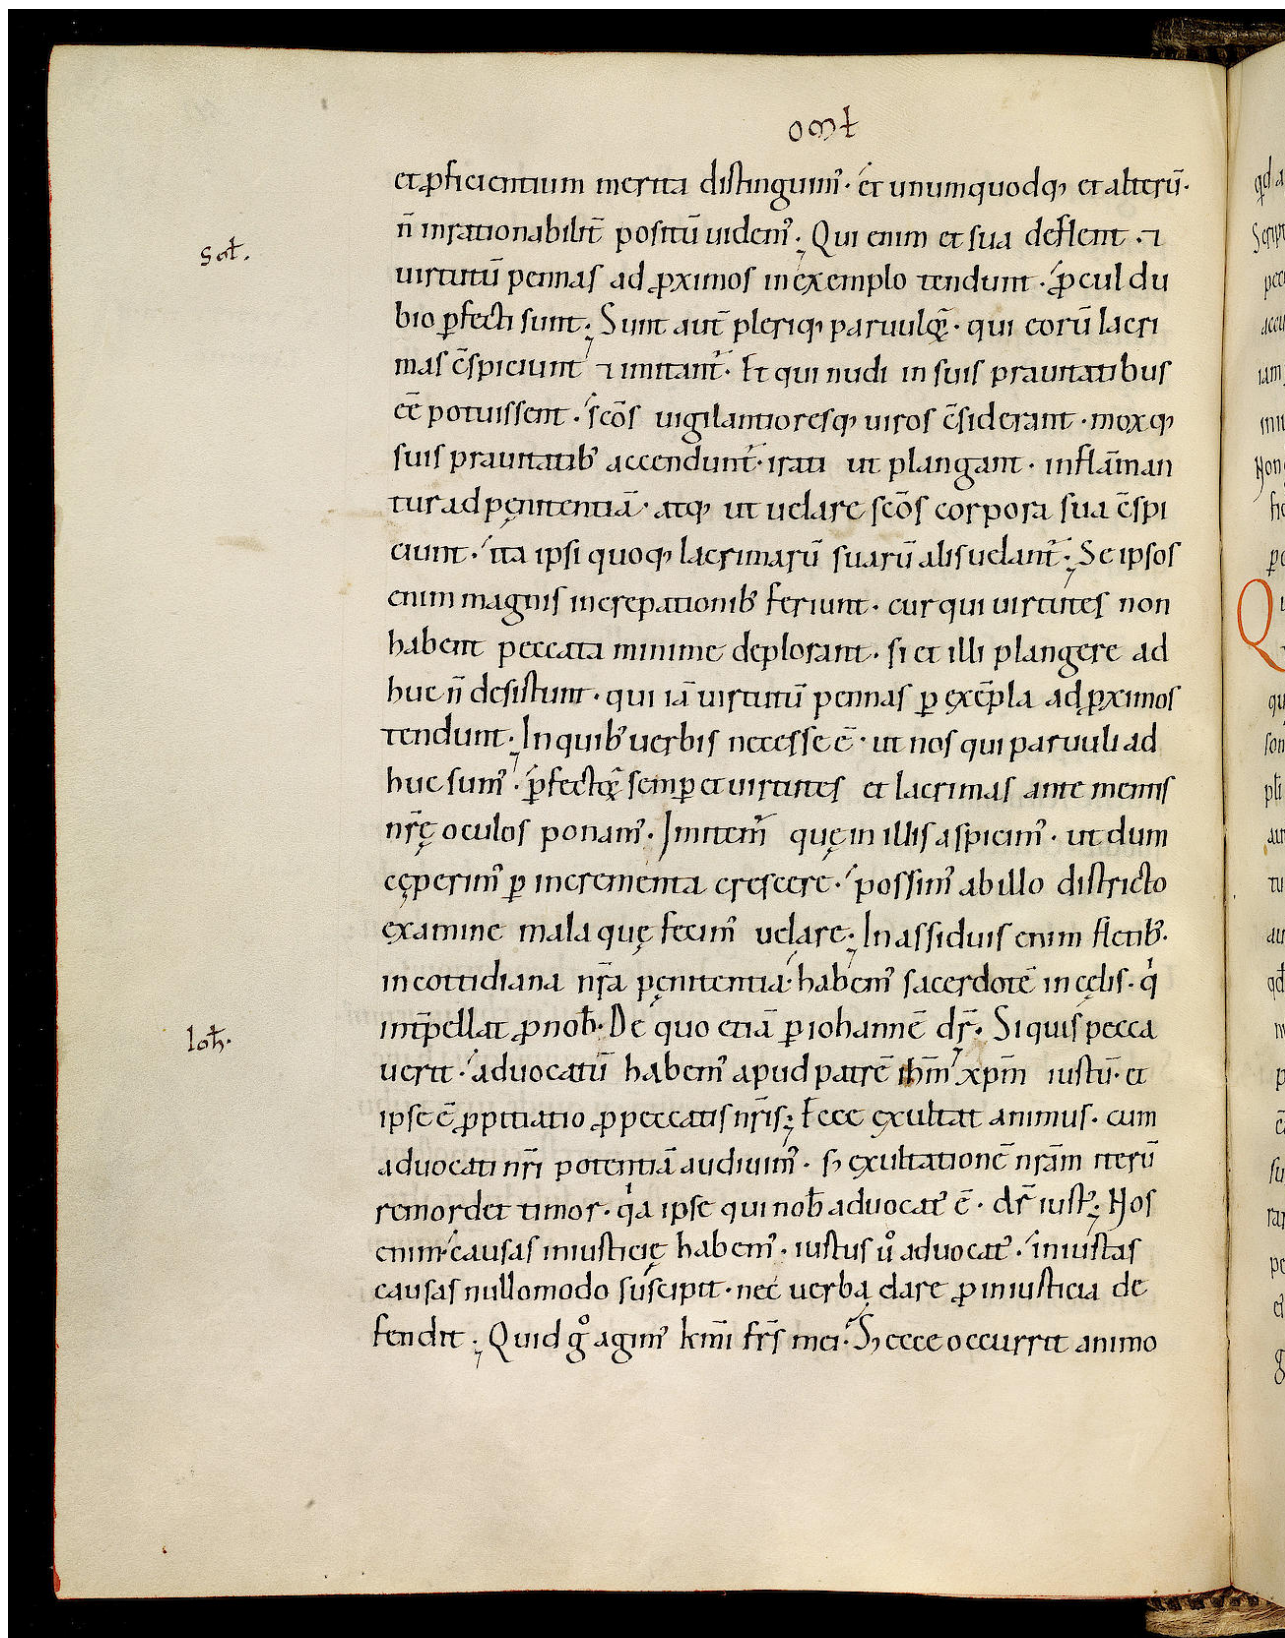 omt
et ꝓficientium merita distinguim᾽· et unumquodq; et alterū·
n̄ inrationabilit̄ positū uidem᾽· Qui enim et sua deflent · ⁊
uirtutū pennas ad ꝓximos in exemplo tendunt · ꝓcul du
bio ꝑfecti sunt; Sunt aut̄ pleriq; paruuloꝝ · qui eorū lacri
mas c̄spiciunt ⁊ imitant᷑· Et qui nudi in suis prauitatibus
eē potuissent · sc̄os uigilantioresq; uiros c̄siderant · moxq;
suis prauitatib᾽ accendunt᷑· irati ut plangant · inflāman
tur ad pęnitentiā · atq; ut uelare sc̄os corpora sua c̄spi
ciunt · ita ipsi quoq; lacrimarū suarū alis uelant᷑; Se ipsos
enim magnis increpationib᾽ feriunt · cur qui uirtutes non
habent peccata minime deplorant · si et illi plangere ad
huc n̄ desistunt · qui iā uirtutū pennas ꝑ exēpla ad ꝓximos
tendunt; In quib᾽ uerbis necesse ē · ut nos qui paruuli ad
huc sum᾽ · ꝑfectoꝝ semꝑ et uirtutes et lacrimas ante mentis
nr̄ę oculos ponam᾽· Imitem᾽ quę in illis aspicim᾽ · ut dum
cęperim᾽ ꝑ incrementa crescere · possim᾽ ab illo districto
examine mala quę fecim᾽ uelare; In assiduis enim fletib᾽·
in cottidiana nr̄a pęnitentia· habem᾽ sacerdotē in cęlis · q
int̄pellat ꝓ nob̄· De quo etiā ꝑ iohannē dr̄· Si quis pecca
uerit · aduocatū habem᾽ apud patrē ih̄m xp̄m iustū· et
ipse ē ꝓpitiatio ꝓ peccatis nr̄is; Ecce exultat animus · cum
aduocati nr̄i potentiā audiuim᾽ · s; exultationē nr̄am iterū
remordet timor · qa ipse qui nob̄ aduocat᾽ ē · dr̄ iust᾽; Nos
enim causas iniusticię habem᾽ · iustus u᷎ aduocat᾽ · iniustas
causas nullomodo suscipit · nec uerba dare ꝓ iniusticia de
fendit; Quid gͦ agim᾽ km̄i fr̄s mei· S; ecce occurrit animo
Ioh̄·